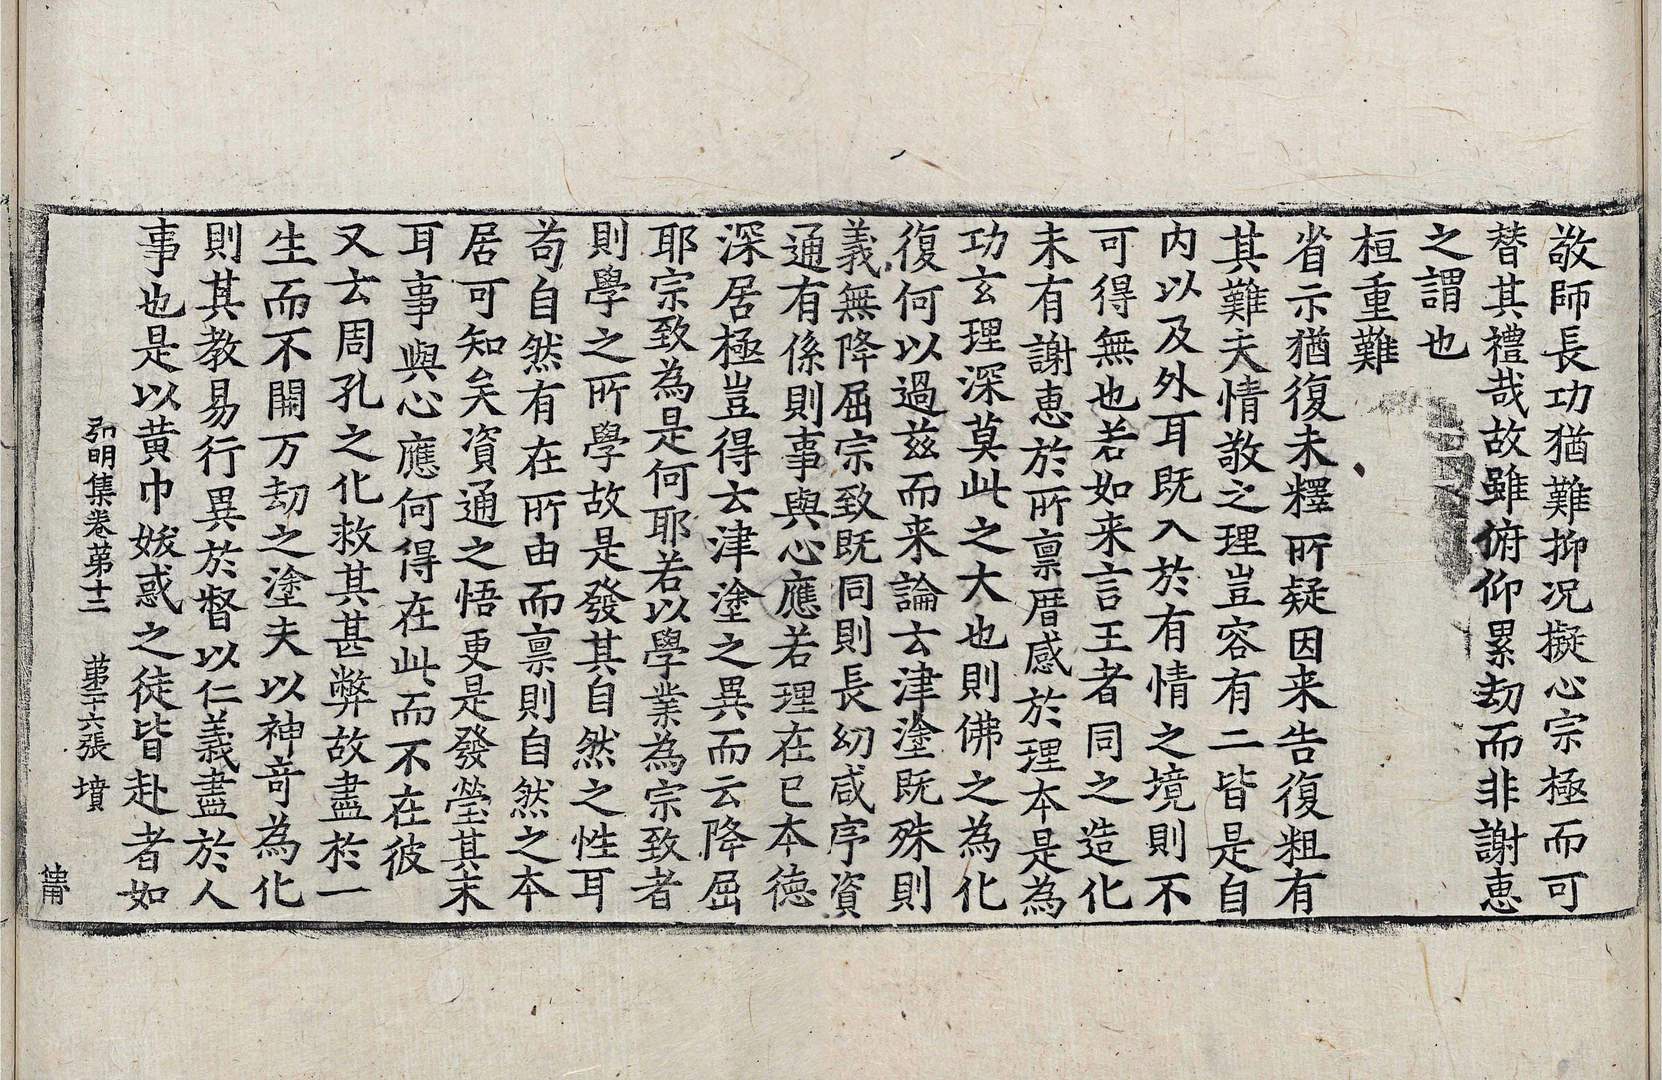 敬師長功猶難抑况擬心宗極而可
替其禮哉故雖俯仰累劫而非謝惠
之謂也
桓重難
省示猶復未釋所疑因来告復粗有
其難夫情敬之理豈容有二皆是自
内以及外耳既入於有情之境則不
可得無也若如来言王者同之造化
未有謝惠於所禀厝感於理本是為
功玄理深莫此之大也則佛之為化
復何以過兹而来論云津塗既殊則
義無降屈宗致既同則長幼咸序資
通有係則事與心應若理在已本德
深居極豈得云津塗之異而云降屈
耶宗致為是何耶若以學業為宗致者
則學之所學故是發其自然之性耳
苟自然有在所由而禀則自然之本
居可知矣資通之悟更是發瑩其末
耳事與心應何得在此而不在彼
又云周孔之化救其甚弊故盡於一
生而不開万劫之塗夫以神竒為化
則其教易行異於督以仁義盡於人
事也是以黄巾妖惑之徒皆赴者如
弘明集卷第十二　第二十六張　墳